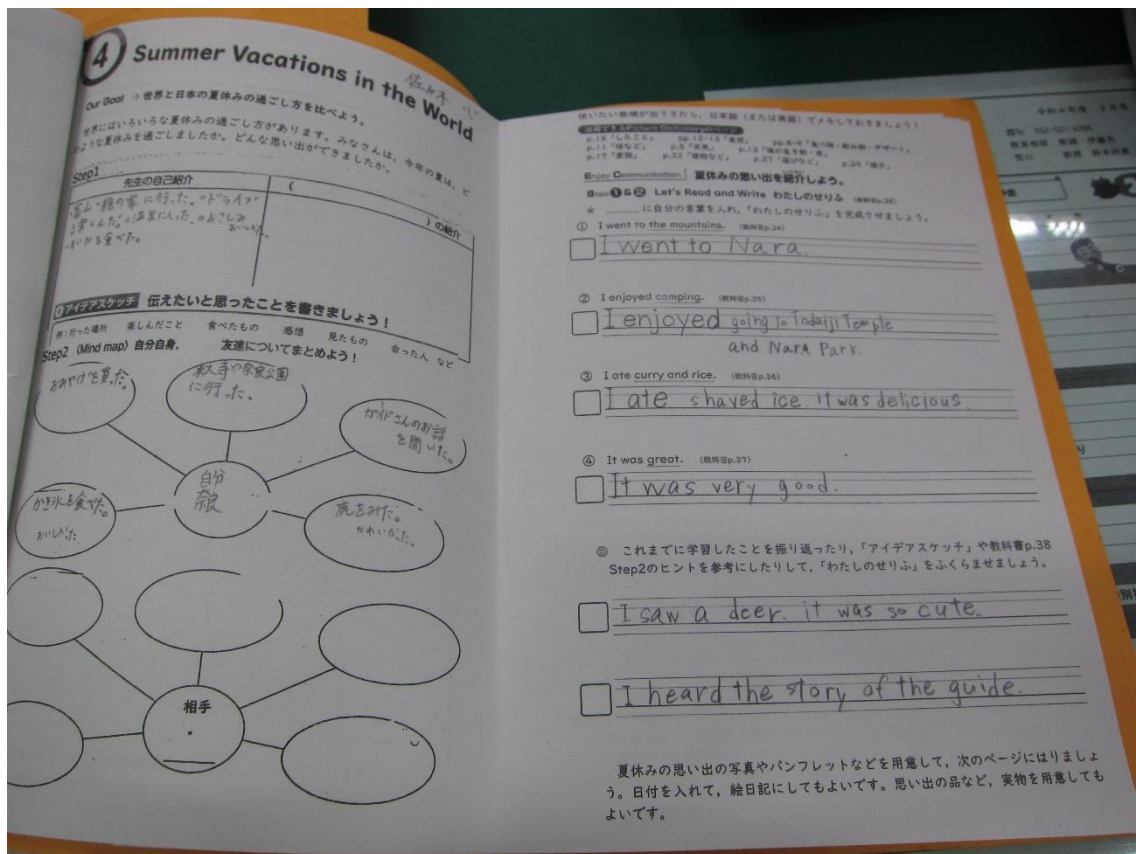 4 Summer Vacations in the World
佐々木 心
Our Goal ⇒ 世界と日本の夏休みの過ごし方を比べよう。
世界にはいろいろな夏休みの過ごし方があります。みなさんは、今年の夏は、ど
のような夏休みを過ごしましたか。どんな思い出ができましたか。
Step1
先生の自己紹介
( )の紹介
・富山
家に行った。
ドライブ
を楽しんだ。
おさしみ
おいし
すいかを食べた。
アイデアスケッチ 伝えたいと思ったことを書きましょう！
例：行った場所 楽しんだこと 食べたもの 感想 見たもの 会った人 など
Step2 〈Mind map〉自分自身、 友達についてまとめよう！
おみやげを買った。
東大寺や奈良公園
に行った。
ガイドさんのお話
を聞いた。
自分
奈良
かき氷を食べた。
おいしかった
鹿をみた。
かわいかった。
相手
使いたい表現が出てきたら、日本語（または英語）でメモしておきましょう！
Enjoy Communication 夏休みの思い出を紹介しよう。
Step ❶&❷ Let's Read and Write わたしのせりふ (教科書p.38)
★ ＿＿＿ に自分の言葉を入れ、「わたしのせりふ」を完成させましょう。
① I went to the mountains. (教科書p.34)
I went to Nara.
② I enjoyed camping. (教科書p.35)
I enjoyed going to Todaiji Temple
and Nara Park.
③ I ate curry and rice. (教科書p.36)
I ate shaved ice. it was delicious.
④ It was great. (教科書p.37)
It was very good.
これまでに学習したことを振り返ったり，「アイデアスケッチ」や教科書p.38
Step2のヒントを参考にしたりして，「わたしのせりふ」をふくらませましょう。
I saw a deer. it was so cute.
I heard the story of the guide.
夏休みの思い出の写真やパンフレットなどを用意して，次のページにはりましょ
う。日付を入れて，絵日記にしてもよいです。思い出の品など，実物を用意しても
よいです。